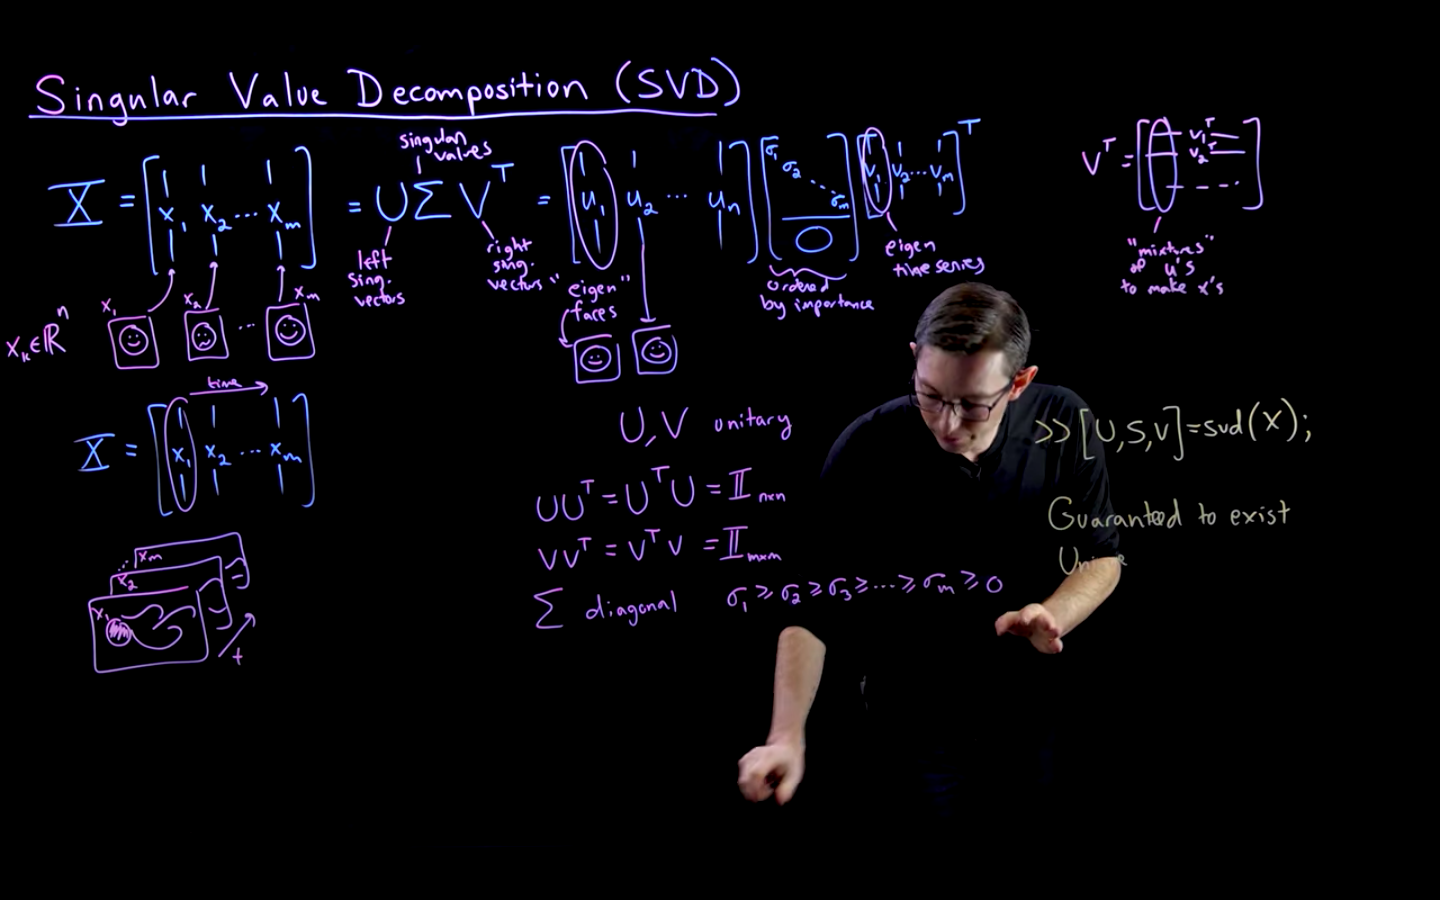 Singular Value Decomposition (SVD)
singular values
X = [x₁ x₂ ⋯ xₘ] = U Σ Vᵀ = [u₁ u₂ ⋯ uₙ] [σ₁ σ₂ ⋱ σₘ 0] [v₁ v₂ ⋯ vₘ]ᵀ
Vᵀ = [v₁ᵀ v₂ᵀ]
left sing. vectors
right sing. vectors
"eigen" faces
ordered by importance
eigen time series
"mixtures" of u's to make x's
xₖ ∈ ℝⁿ
x₁ x₂ ⋯ xₘ
time
X = [x₁ x₂ ⋯ xₘ]
x₁ x₂ ⋯ xₘ
t
U, V unitary
UUᵀ = UᵀU = 𝕀ₙₓₙ
VVᵀ = VᵀV = 𝕀ₘₓₘ
Σ diagonal σ₁ ≥ σ₂ ≥ σ₃ ≥ ⋯ ≥ σₘ ≥ 0
>> [U,S,V]=svd(X);
Guaranteed to exist